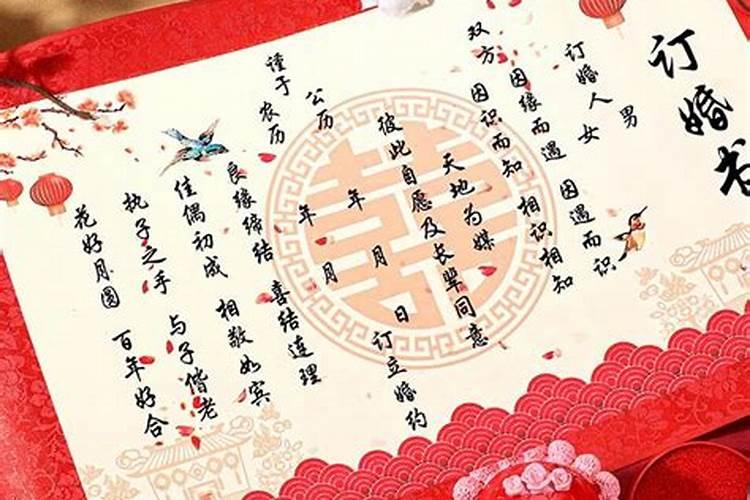 订婚书
订婚人
男
女
双方
因缘而遇 因遇而识
因识而知 相识相知
天地为媒
彼此自愿及长辈同意
谨于
公历 年 月 日 订立婚约
农历 年 月
良缘缔结 喜结连理
佳偶初成 相敬如宾
执子之手 与子偕老
花好月圆 百年好合